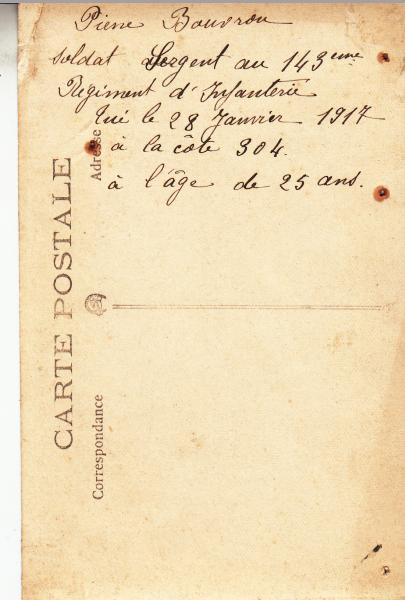 Pierre Bouvron
soldat Sergent au 143ème
Régiment d'Infanterie
tué le 28 Janvier 1917
à la côte 304.
à l'âge de 25 ans.
CARTE POSTALE
Adresse
Correspondance